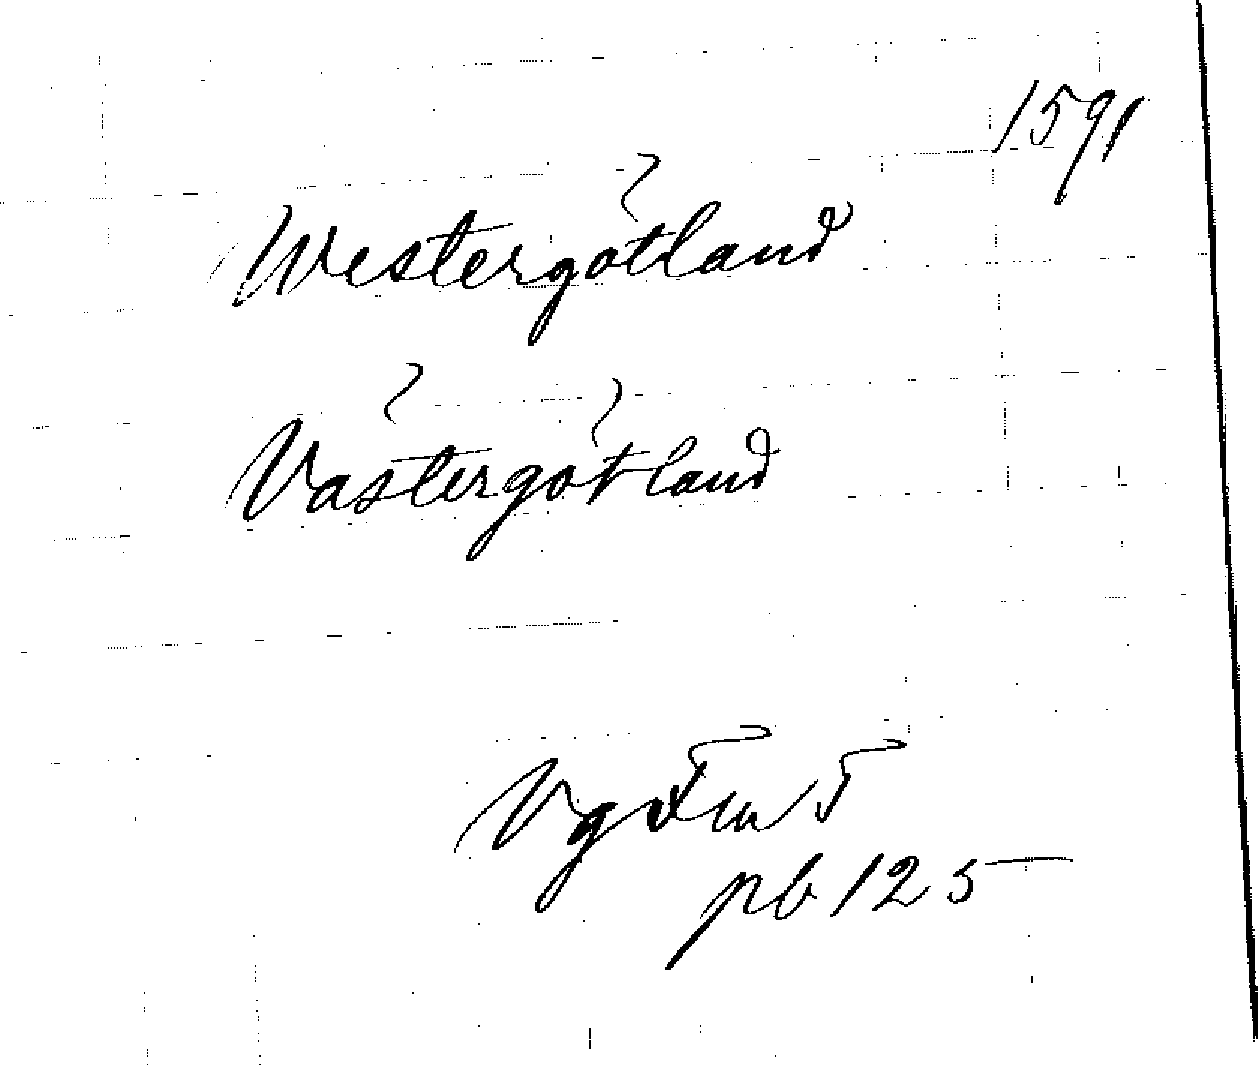 1591
Westergötland
Västergötland
Vg Fmt
pb 125